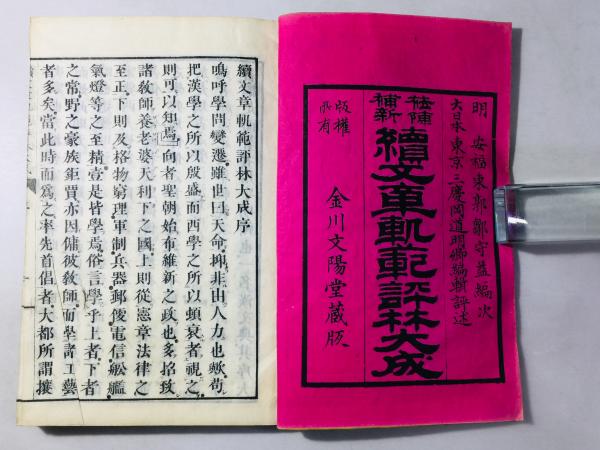 明 安福東郭鄒守益編次
大日本 東京 三慶陶道明卿編輯評述
補新
續文章軌範評林大成
版權
所有
金川文陽堂藏版
續文章軌範評林大成序
嗚呼學問變遷雖世曰天命抑非由人力也歟苟
把漢學之所以殷盛而西學之所以頓衰者視之
則可以知焉向者聖朝始布維新之政也多招致
諸敎師養老婆天利下之國上則從憲章法律之
至正下則及格物窮理軍制兵器郵傳電信舩艦
氣燈等之至精壹是皆學焉俗言學乎上者下者
之常野之蒙族鉅賈亦因傭彼敎師而學諸工藝
者多矣當此時而爲之率先首倡者大都所謂攘